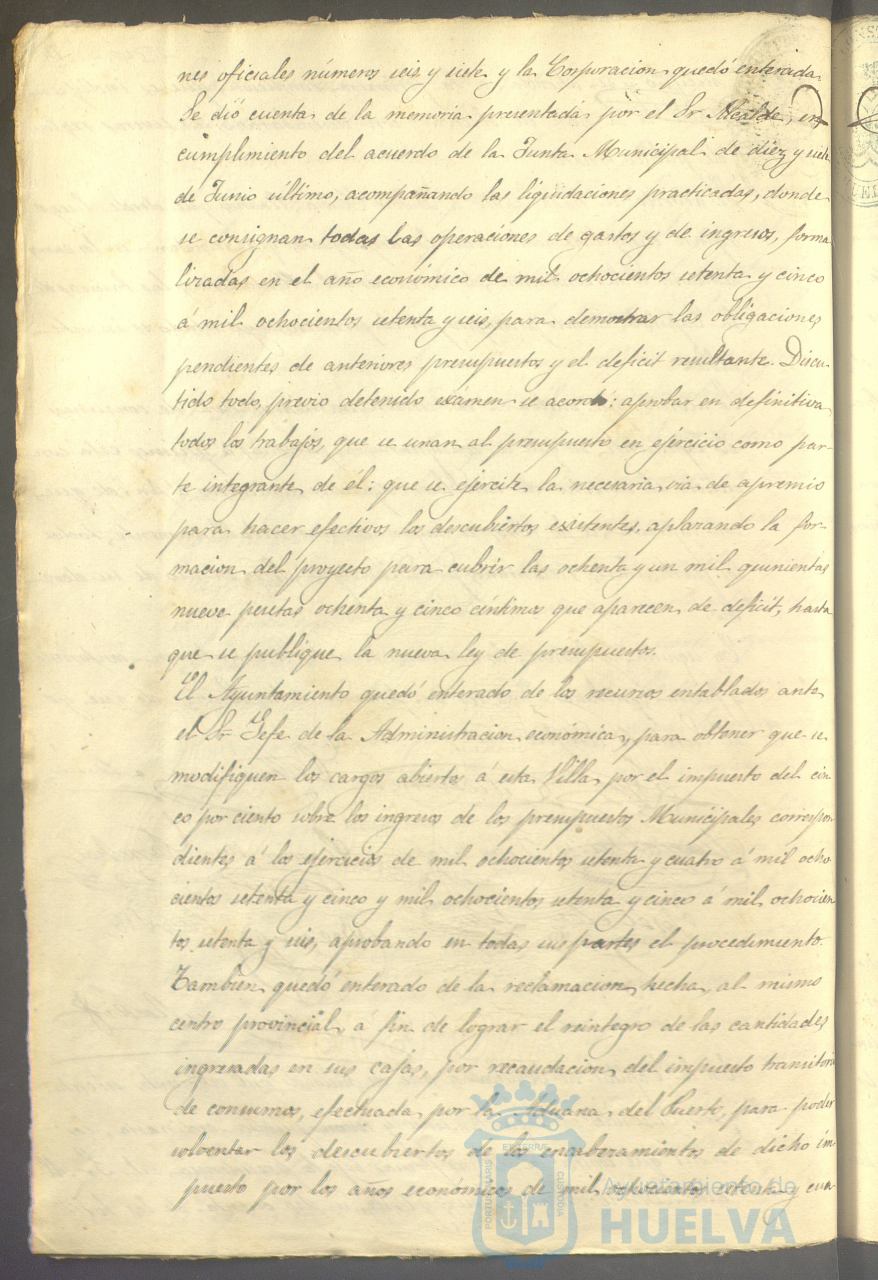 nes oficiales números seis y siete y la Corporacion quedó enterada.
Se dió cuenta de la memoria presentada por el Sr Alcalde, en
cumplimiento del acuerdo de la Junta Municipal de diez y siete
de Junio último, acompañando las liquidaciones practicadas, donde
se consignan todas las operaciones de gastos y de ingresos, forma
lizadas en el año económico de mil ochocientos setenta y cinco
á mil ochocientos setenta y seis, para demostrar las obligaciones
pendientes de anteriores presupuestos y el deficit resultante. Discu-
tido todo, previo detenido examen se acordó: aprobar en definitiva
todos los trabajos, que se unan al presupuesto en ejercicio como par-
te integrante de él: que se ejercite la necesaria via de apremio
para hacer efectivos los descubiertos existentes, aplazando la for-
macion del proyecto para cubrir las ochenta y un mil quinientas
nueve pesetas ochenta y cinco céntimos que aparecen de deficit, hasta
que se publique la nueva ley de presupuestos.
El Ayuntamiento quedó enterado de los recursos entablados ante
el Sr Jefe de la Administracion económica, para obtener que se
modifiquen los cargos abiertos á esta Villa por el impuesto del cin
co por ciento sobre los ingresos de los presupuestos Municipales correspon
dientes á los ejercicios de mil ochocientos setenta y cuatro á mil ocho
cientos setenta y cinco y mil ochocientos setenta y cinco á mil ochocien
tos setenta y seis, aprobando en todas sus partes el procedimiento.
Tambien quedó enterado de la reclamacion hecha al mismo
centro provincial á fin de lograr el reintegro de las cantidades
ingresadas en sus cajas, por recaudacion del impuesto transitorio
de consumos, efectuada por la Aduana del Puerto, para poder
solventar los descubiertos de los encabezamientos de dicho im-
puesto por los años económicos de mil ochocientos setenta y cua-
PORTUS MARIS ET TERRAE CUSTODIA
Ayuntamiento de
HUELVA